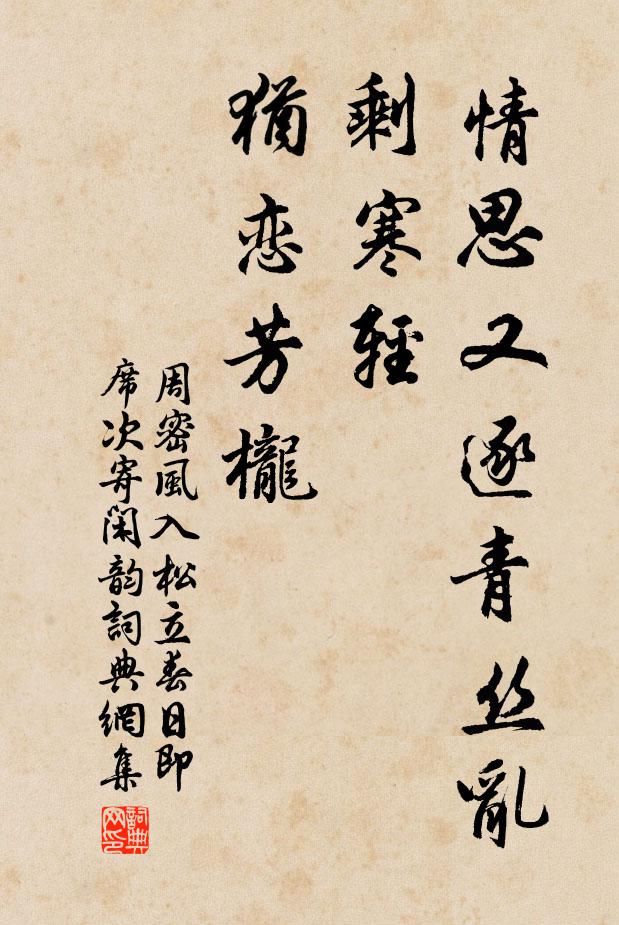 情思又逐青丝亂
剩寒輕
猶恋芳櫳
周密風入松立春日即
席次寄閑韵詞典網集
詞典
网印